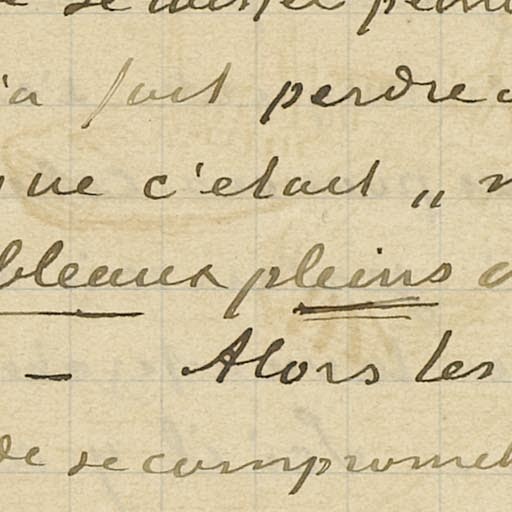 'a fait perdre
ue c'etait „
bleaux pleins
— Alors les
de se compromet